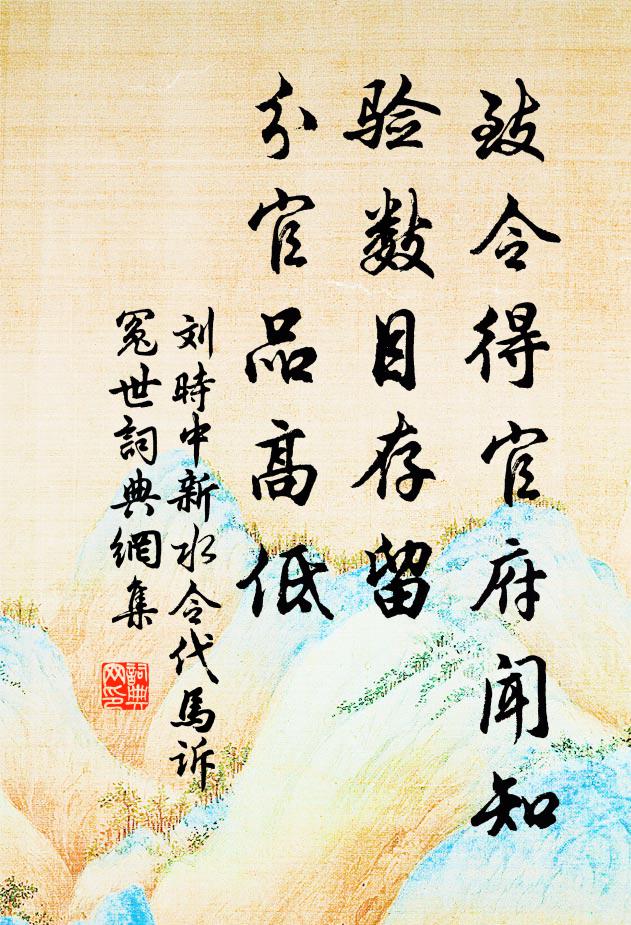 致令得官府闻知
验数目存留
分官品高低
刘時中新水令代馬訴
冤世詞典網集
詞典